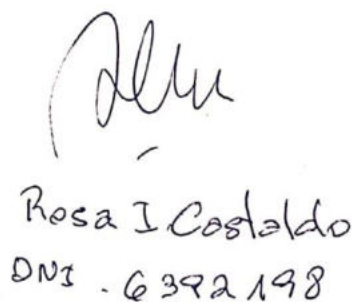 Rosa I Costaldo
DNI . 6392198